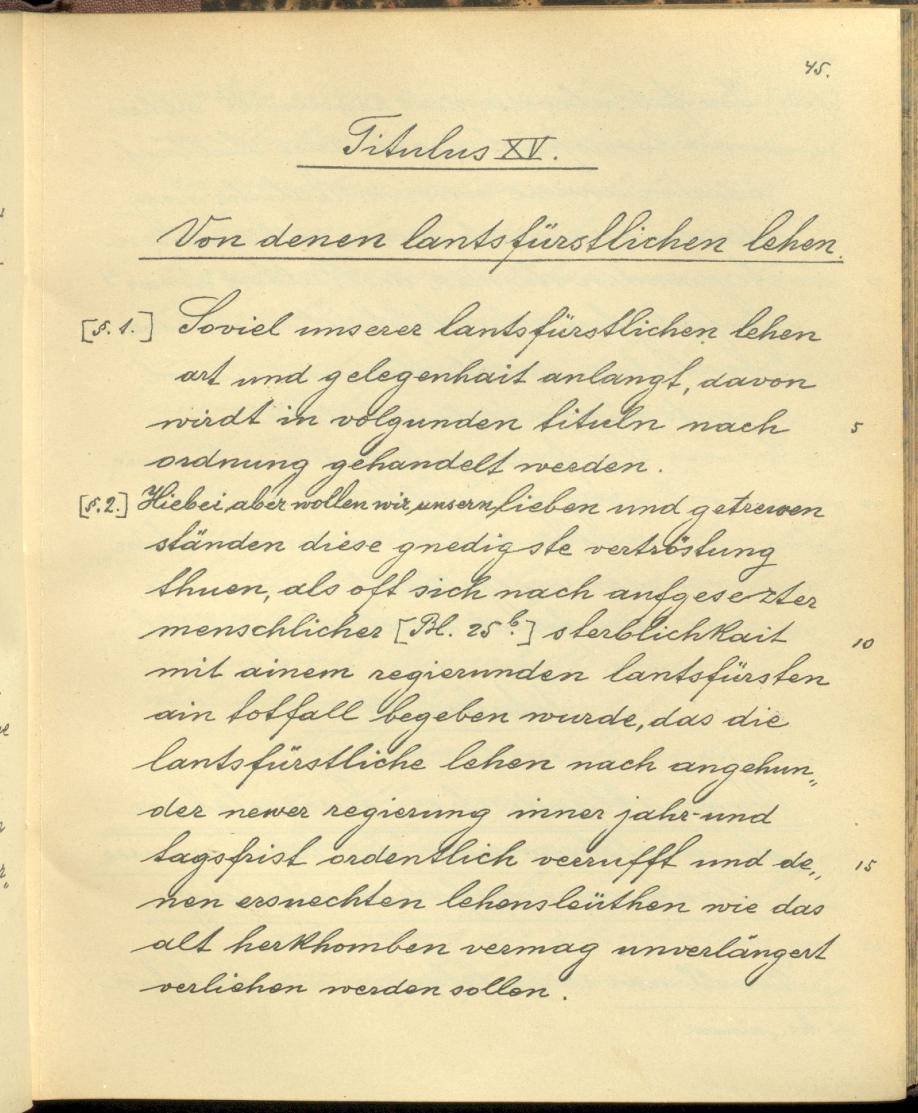 45.
Titulus XV.
Von denen lantsfürstlichen lehen.
[§. 1.] Soviel unserer lantsfürstlichen lehen
art und gelegenhait anlangt, davon
wirdt in volgunden tituln nach 5
ordnung gehandelt werden.
[§. 2.] Hiebei aber wollen wir unsern lieben und getrewen
ständen diese gnedigste vertröstung
thuen, als oft sich nach aufgesezter
menschlicher [Bl. 25b.] sterblichkait 10
mit ainem regierunden lantsfürsten
ain totfall begeben wurde, das die
lantsfürstliche lehen nach angehun„
der newer regierung inner jahr- und
tagsfrist ordentlich verrufft und de„ 15
nen ersuechten lehensleüthen wie das
alt herkhomben vermag unverlängert
verliehen werden sollen.